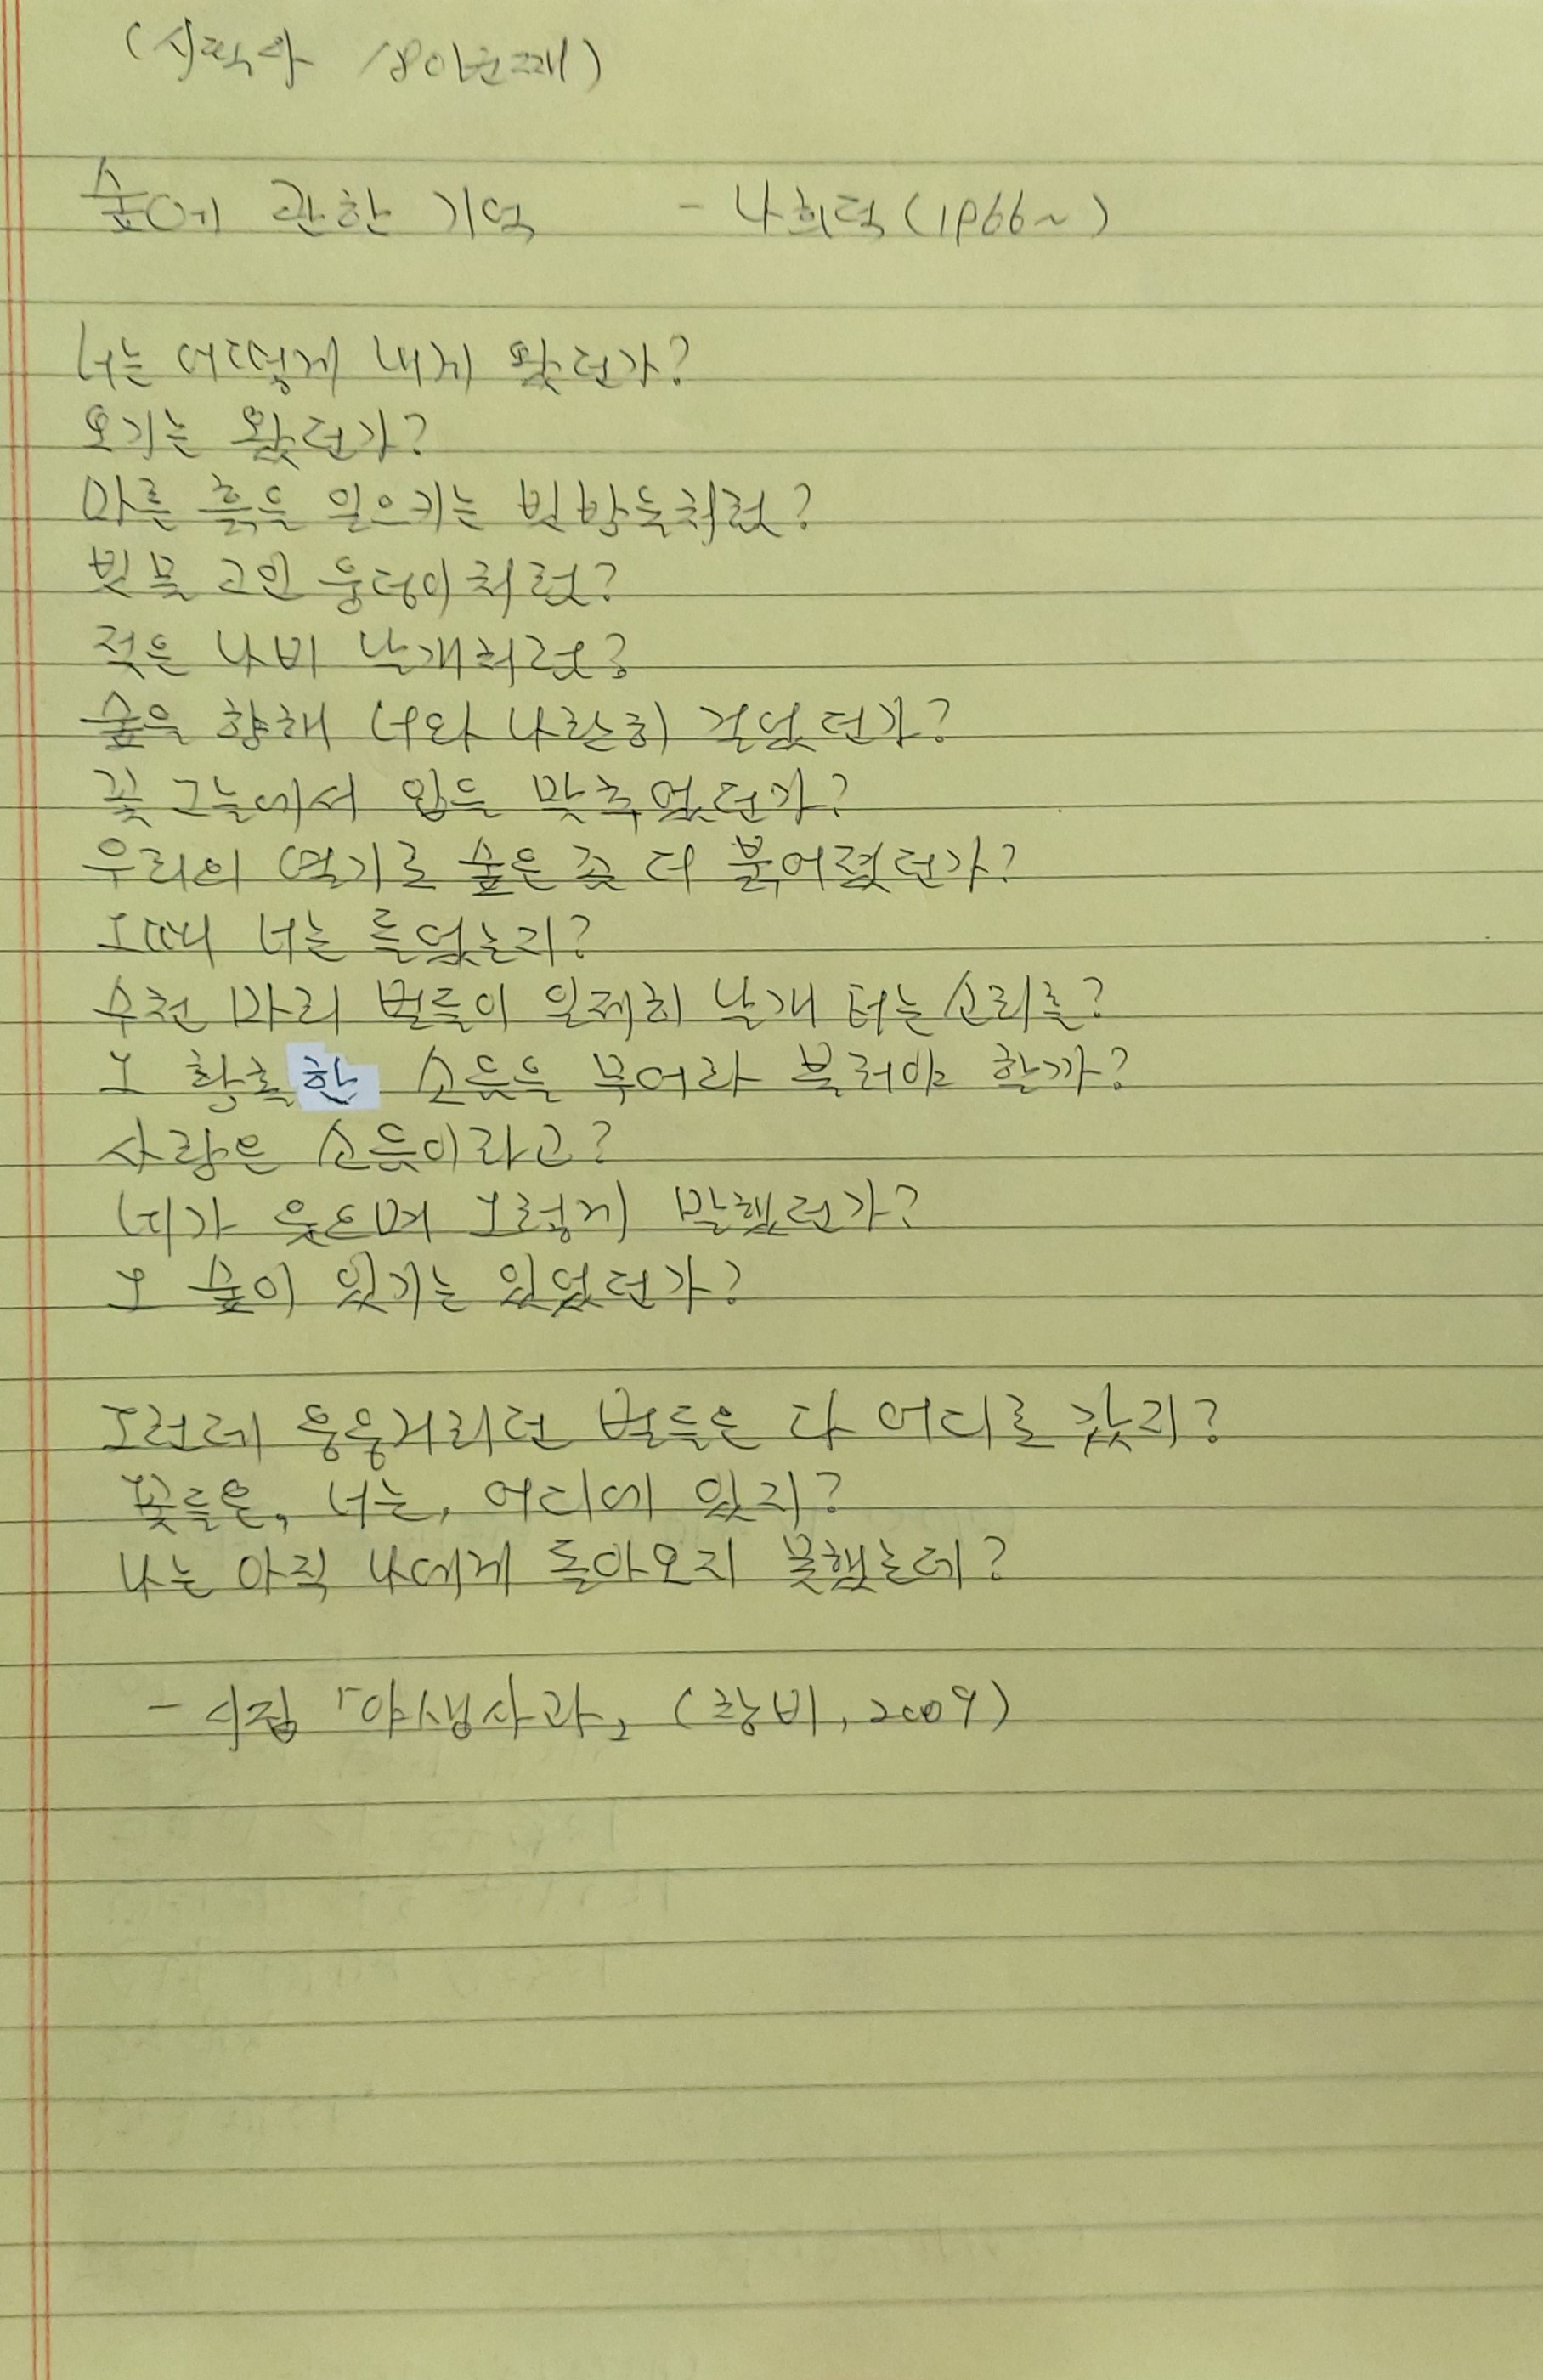 (시필사 180일째)
숲에 관한 기억 - 나희덕(1966~)
너는 어떻게 내게 왔던가?
오기는 왔던가?
마른 흙을 일으키는 빗방울처럼?
빗물 고인 웅덩이처럼?
젖은 나비 날개처럼?
숲을 향해 너와 나란히 걸었던가?
꽃그늘에서 입을 맞추었던가?
우리의 열기로 숲은 좀 더 붉어졌던가?
그때 너는 들었는지?
수천 마리 벌들이 일제히 날개 터는 소리를?
그 황홀한 소음을 무어라 불러야 할까?
사랑은 소음이라고?
네가 웃으며 그렇게 말했던가?
그 숲이 있기는 있었던가?
그런데 웅웅거리던 벌들은 다 어디로 갔지?
꽃들은, 너는, 어디에 있지?
나는 아직 나에게 돌아오지 못했는데?
- 시집 「야생사과」 (창비, 2009)